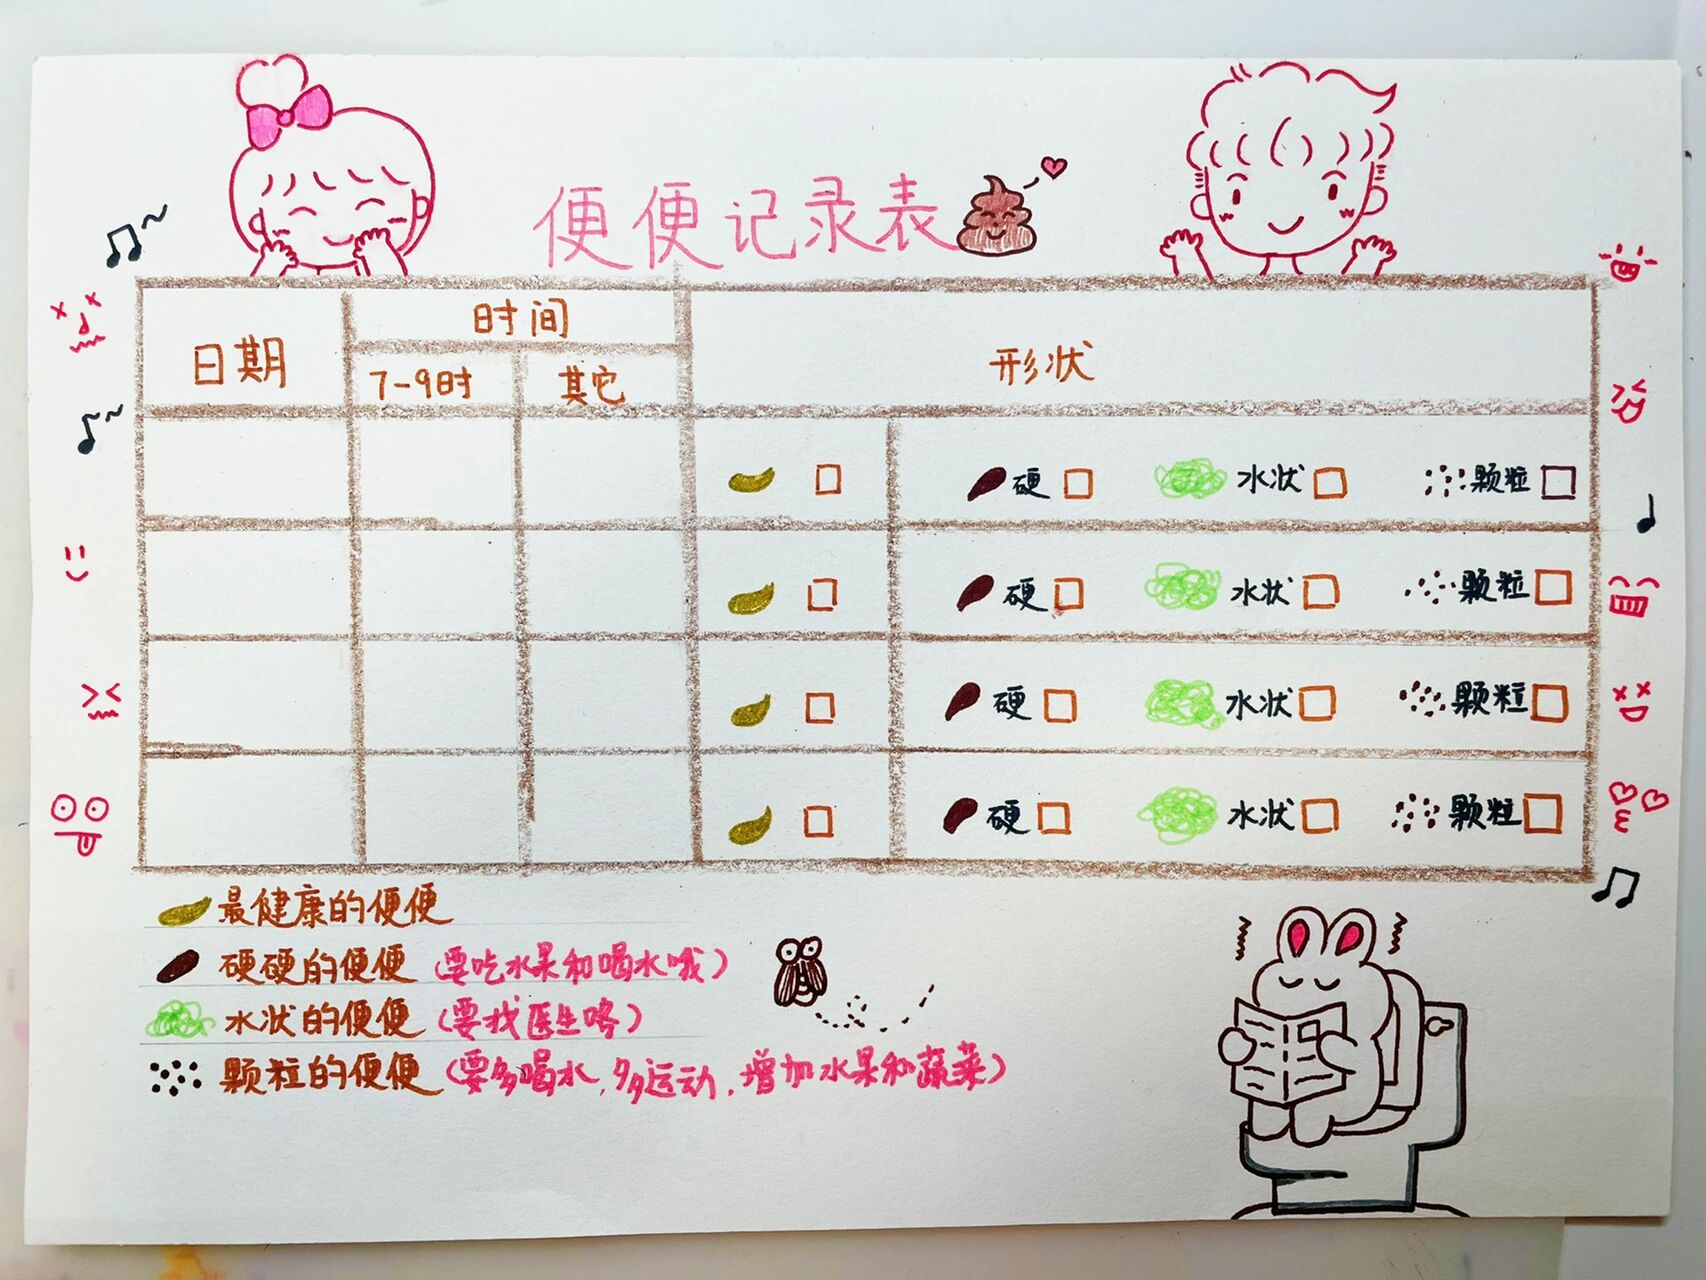 便便记录表
日期 时间 形状
7-9时 其它
硬 水状 颗粒
硬 水状 颗粒
硬 水状 颗粒
硬 水状 颗粒
最健康的便便
硬硬的便便(要吃水果和喝水哦)
水状的便便(要找医生咯)
颗粒的便便(要多喝水,多运动,增加水果和蔬菜)